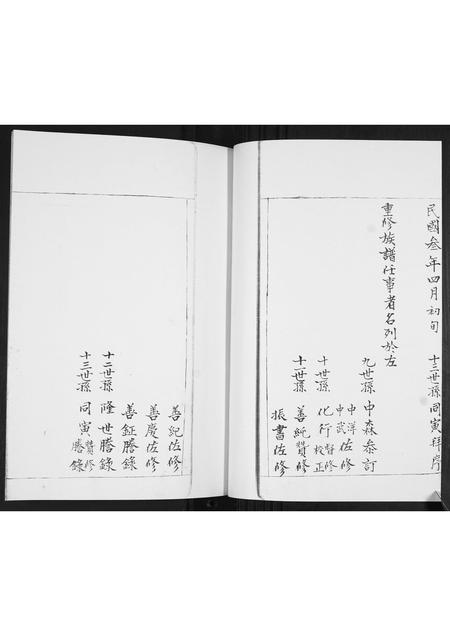 民國叁年四月初旬 十三世孫同寅拜序
重修族譜任事者名列於左
九世孫 中森叅訂
中洋 中武 佐修
十世孫 化行 督修 校正
十一世孫 善純贊修
振書佐修
善紀佐修
善慶佐修
善鉦謄錄
十二世孫 隆世謄錄
十三世孫 同寅 贊修 謄錄